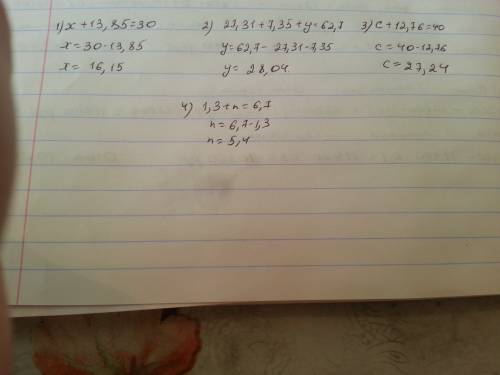 1) x + 13,85 = 30
x = 30 - 13,85
x = 16,15
2) 27,31 + 7,35 + y = 62,7
y = 62,7 - 27,31 - 7,35
y = 28,04
3) c + 12,76 = 40
c = 40 - 12,76
c = 27,24
4) 1,3 + n = 6,7
n = 6,7 - 1,3
n = 5,4